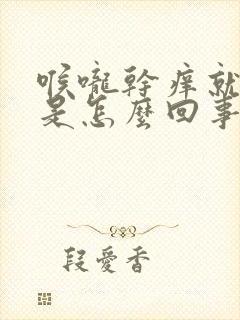 喉嚨幹痒就
是怎麼回事
段愛香